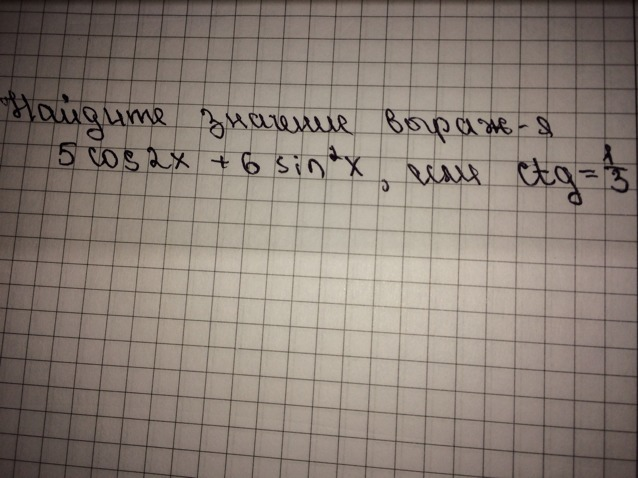 Найдите значение выраж-я
5 cos2x + 6 sin²x, если ctg = 1/3